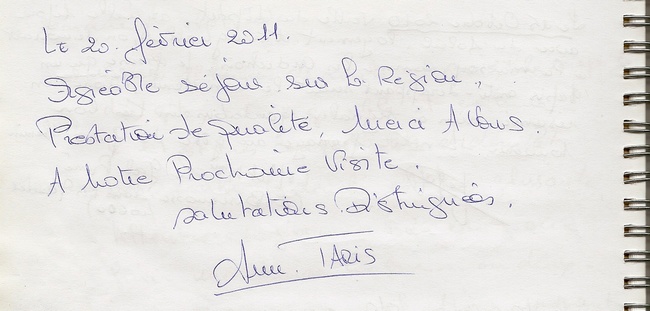 Le 20. février 2011.
Agréable séjour sur la Région,
Prestation de qualité, Merci A Vous.
A notre Prochaine Visite.
salutations Distinguées.
TARIS